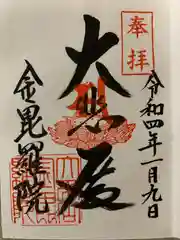 奉拝
令和四年一月九日
大悲殿
金毘羅院